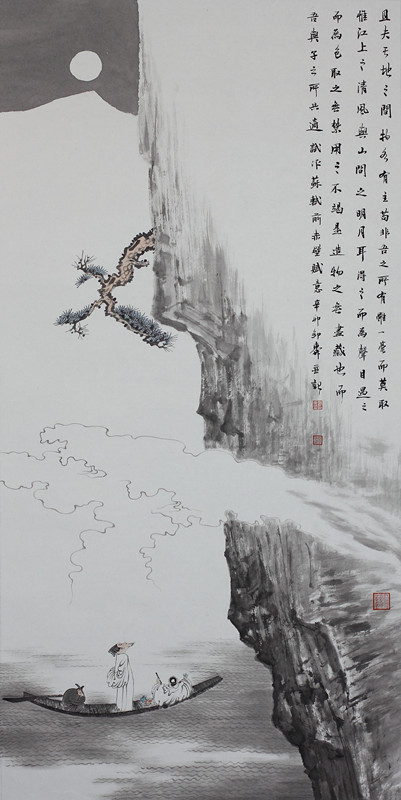 且夫天地之間物各有主苟非吾之所有雖一毫而莫取
惟江上之清風與山間之明月耳得之而為聲目遇之
而為色取之無禁用之不竭是造物之無盡藏也而
吾與子之所共適 試作蘇軾前赤壁賦意 辛卯